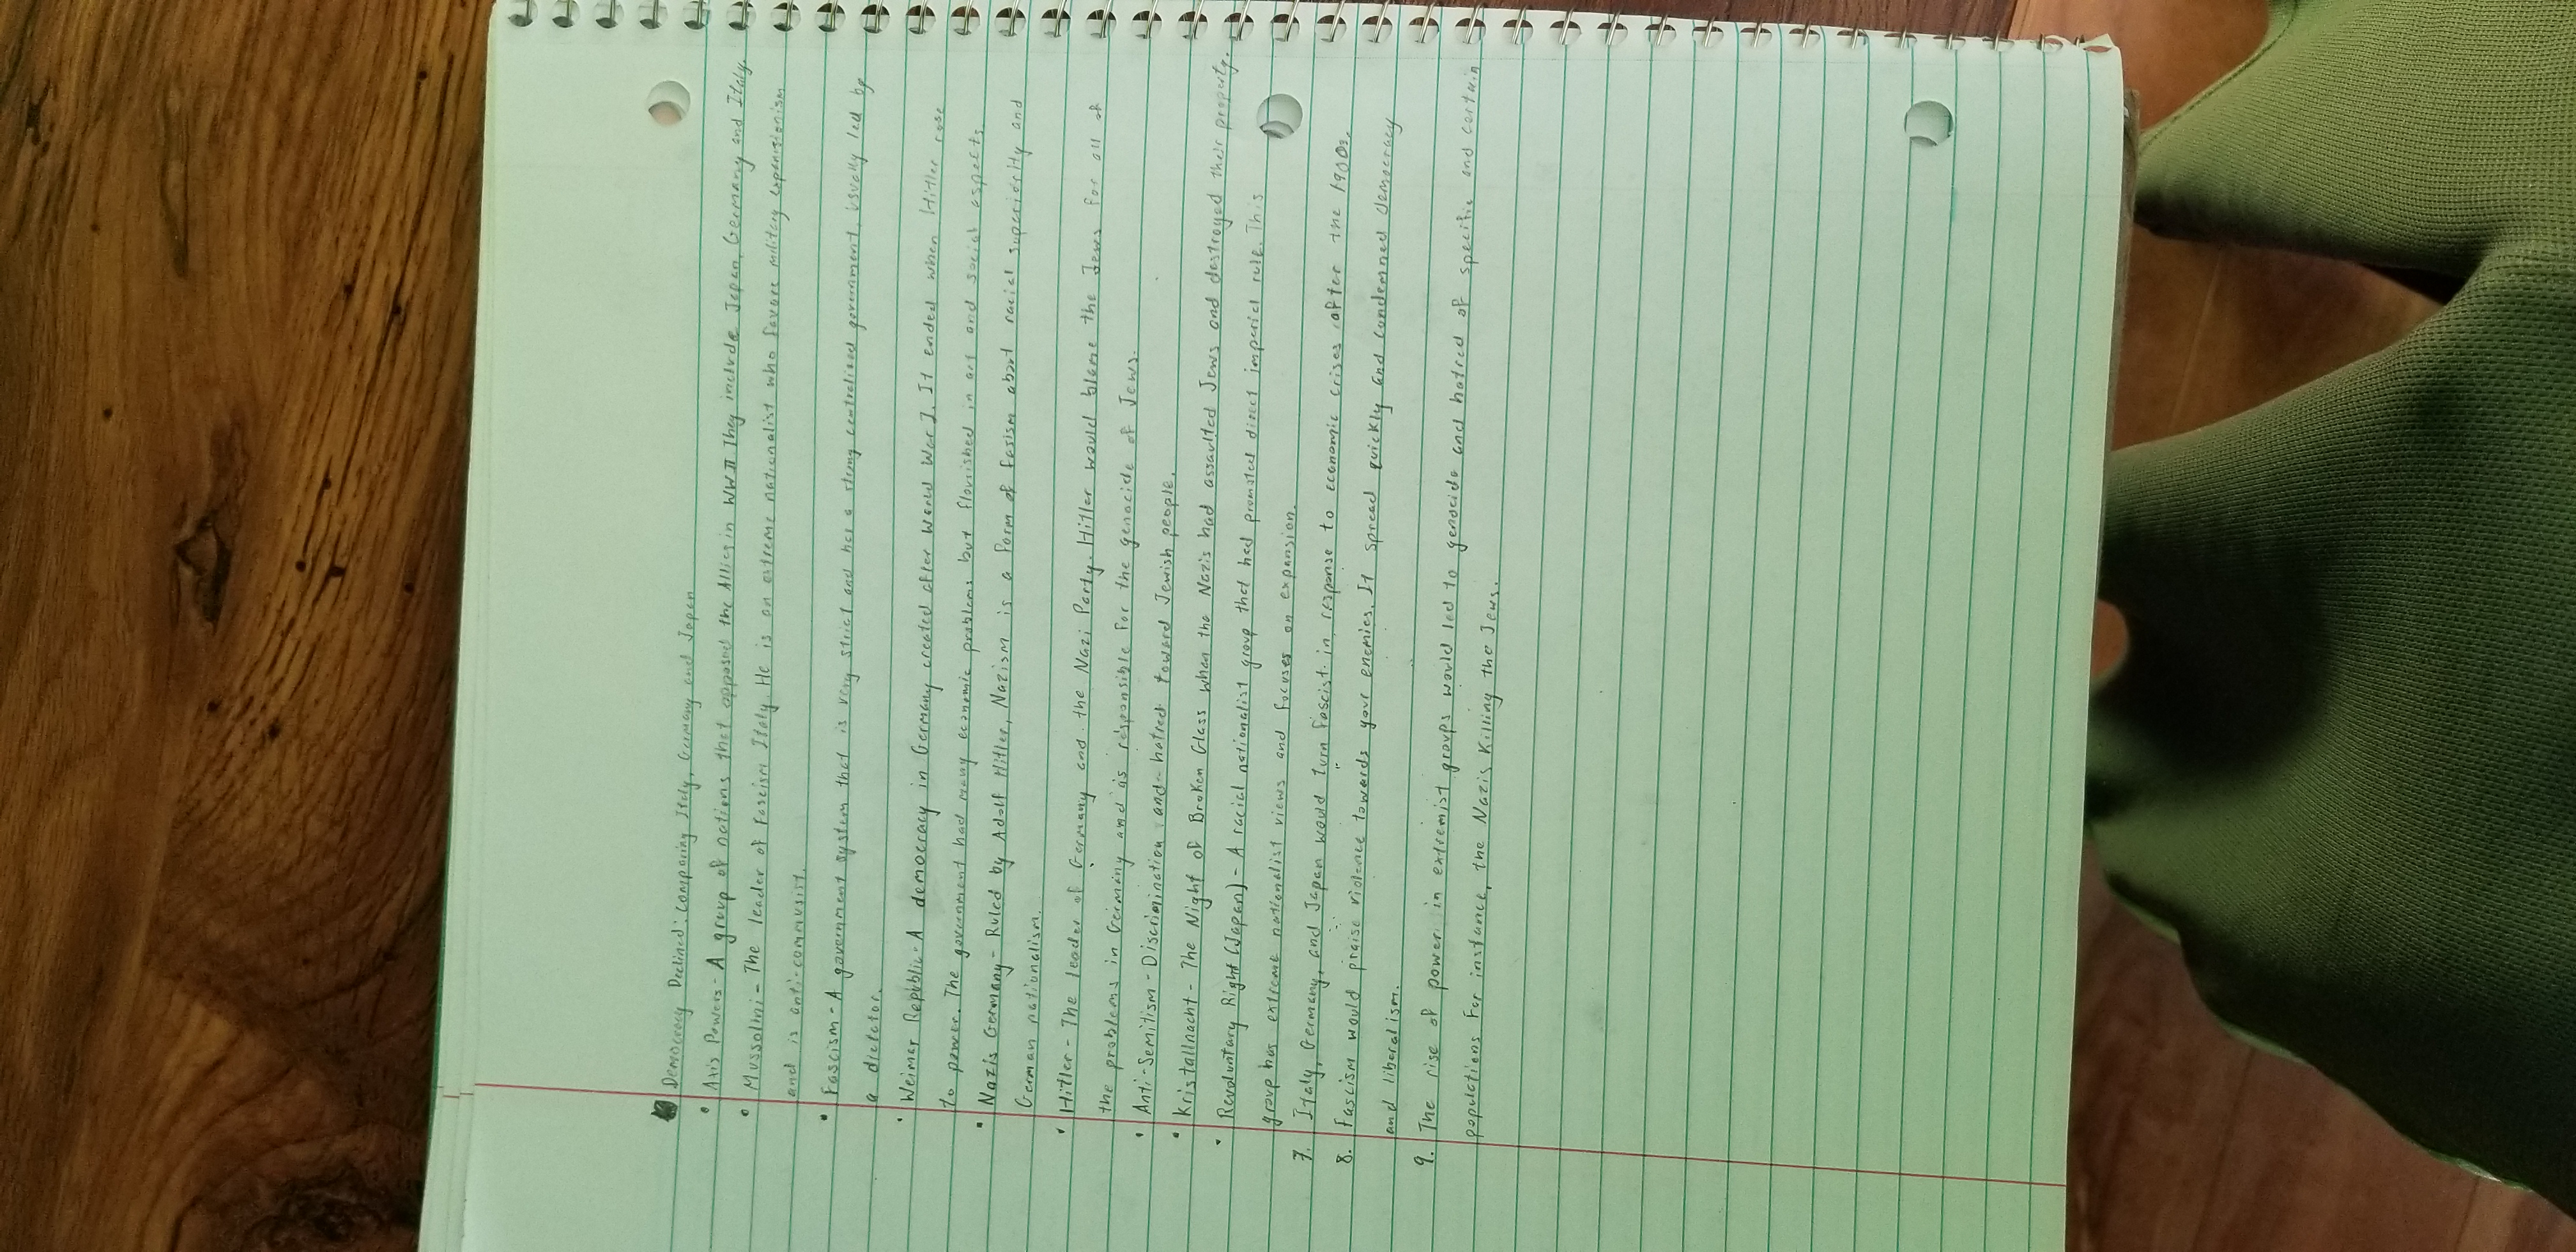 Democracy Declined: Comparing Italy, Germany and Japan
• Axis Powers - A group of nations that opposed the Allies in WWII They include Japan, Germany and Italy.
• Mussolini - The leader of Fascism Italy. He is an extreme nationalist who favors military expansionism
and is anti-commusist.
• Fascism - A government system that is very strict and has a strong centralized government. Usually led by
a dictator.
• Weimar Republic - A democracy in Germany created after World War I. It ended when Hitler rose
to power. The government had many economic problems but flourished in art and social aspects.
• Nazis Germany - Ruled by Adolf Hitler, Nazism is a form of fasism about racial superiority and
German nationalism.
• Hitler - The leader of Germany and the Nazi Party. Hitler would blame the Jews for all of
the problems in Germany and is responsible for the genocide of Jews.
• Anti-Semitism - Discrimination and hatred toward Jewish people.
• Kristallnacht - The Night of Broken Glass when the Nazis had assaulted Jews and destroyed their property.
• Revoluntary Right (Japan) - A racial nationalist group that had promoted direct imperial rule. This
group has extreme nationalist views and focuses on expansion.
7. Italy, Germany, and Japan would turn fascist in response to economic crises after the 1900s.
8. Fascism would praise violence towards your enemies. It spread quickly and condemned democracy
and liberalism.
9. The rise of power in extremist groups would led to genocide and hatred of specific and certain
populations For instance, the Nazis Killing the Jews.